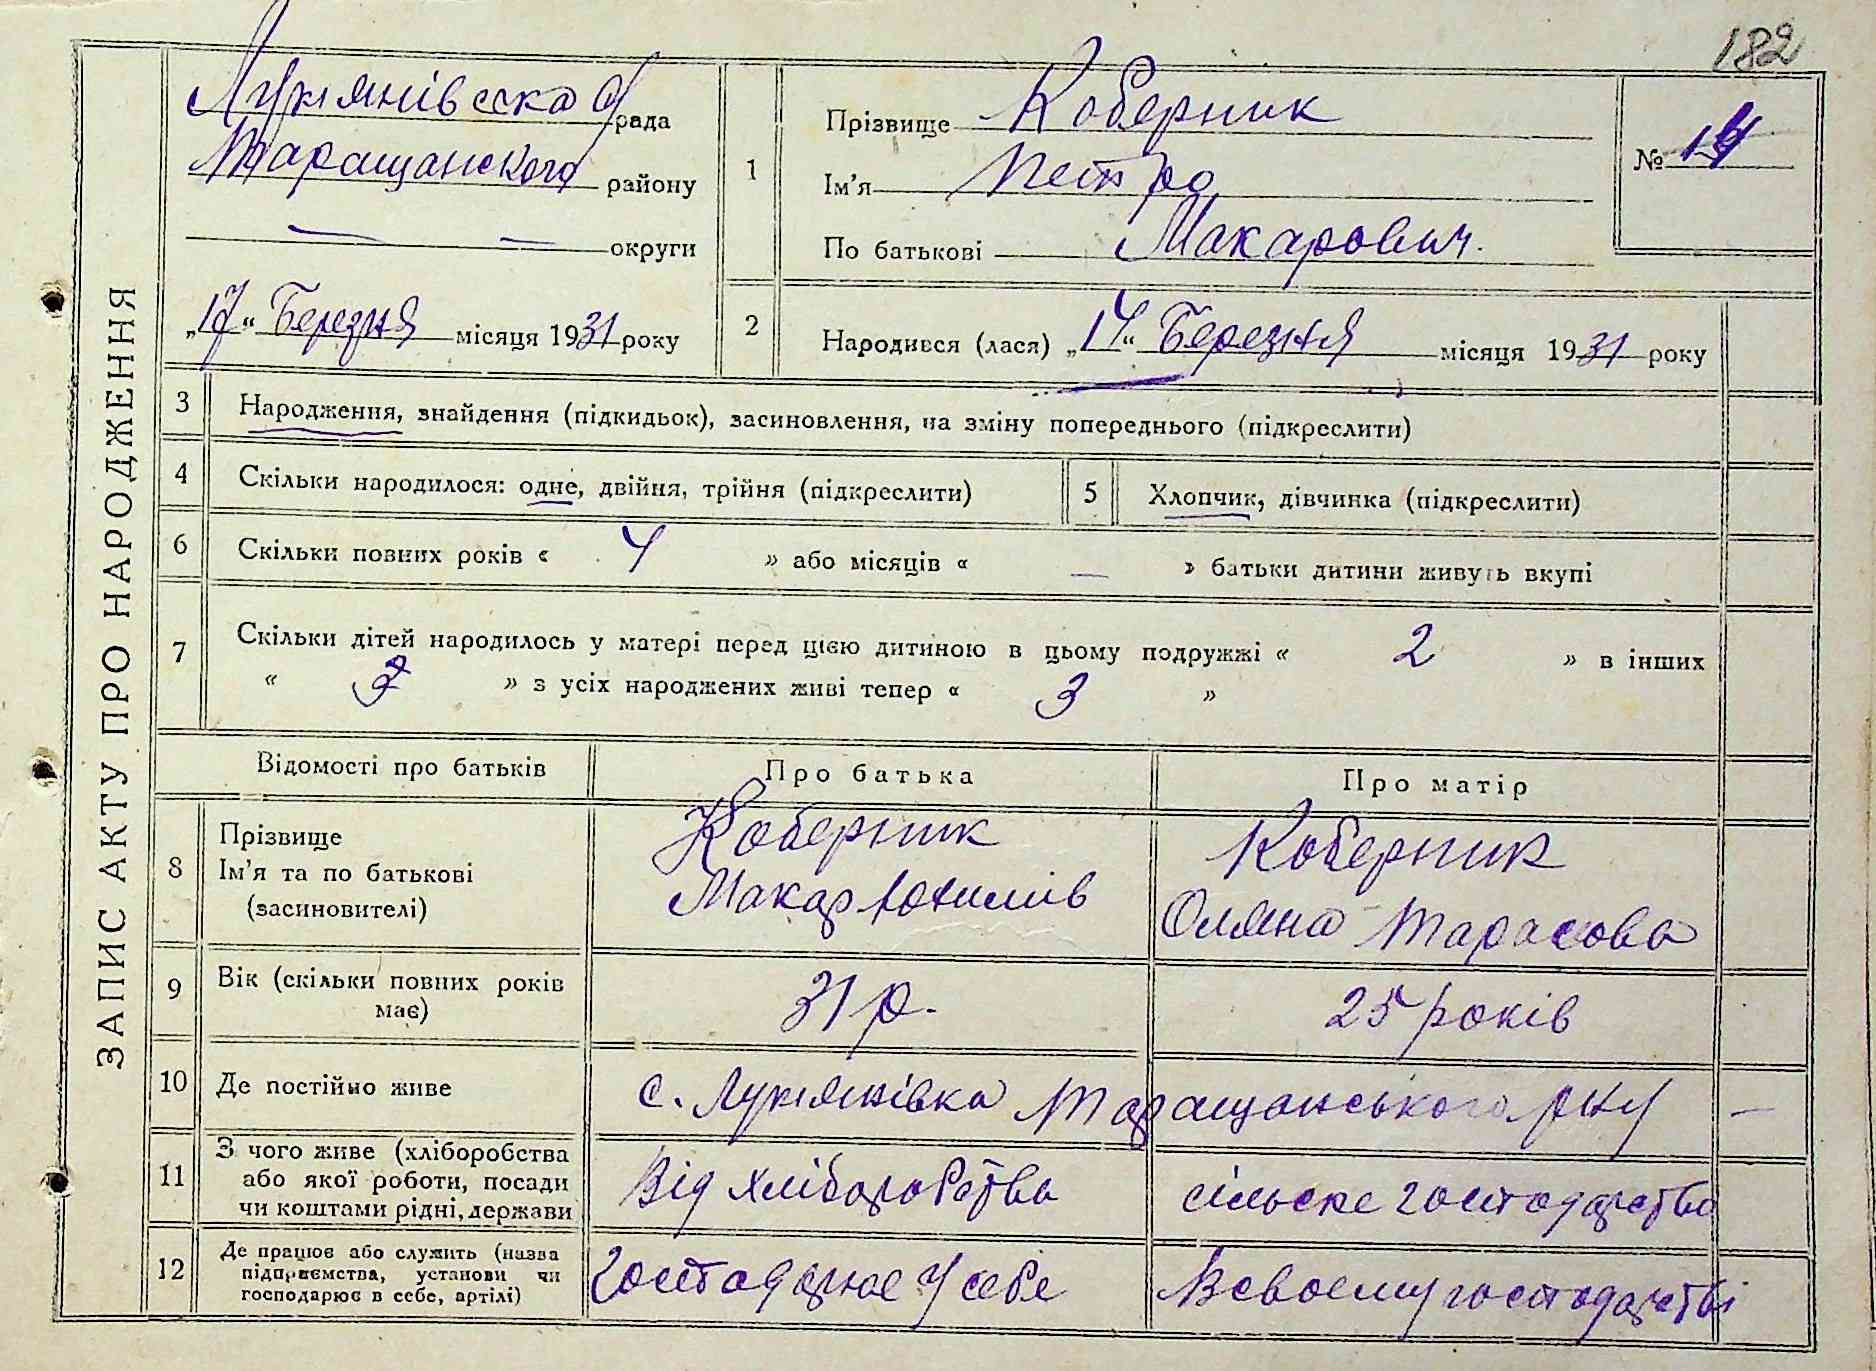 182
ЗАПИС АКТУ ПРО НАРОДЖЕННЯ
Лукянівська С/рада
Таращанского району
— — округи
„17“ Березня місяця 1931 року
1 Прізвище Коберник
Ім'я Петро
По батькові Макарович.
№ 14
2 Народився (лася) „14“ Березня місяця 1931 року
3 Народження, знайдення (підкидьок), засиновлення, на зміну попереднього (підкреслити)
4 Скільки народилося: одне, двійня, трійня (підкреслити)
5 Хлопчик, дівчинка (підкреслити)
6 Скільки повних років « 4 » або місяців « — » батьки дитини живуть вкупі
7 Скільки дітей народилось у матері перед цією дитиною в цьому подружжі « 2 » в інших
« » з усіх народжених живі тепер « 3 »
Відомості про батьків Про батька Про матір
8 Прізвище
Ім'я та по батькові
(засиновителі)
Коберник
Макар
Коберник
Оляна Тарасова
9 Вік (скільки повних років
має)
31 р.
25 років
10 Де постійно живе
с. Лукянівка Таращанського р-ну —
11 З чого живе (хліборобства
або якої роботи, посади
чи коштами рідні, держави
Від хліборобства
сільське господарство
12 Де працює або служить (назва
підприємства, установи чи
господарює в себе, артілі)
господарює у себе
В своєму господарстві